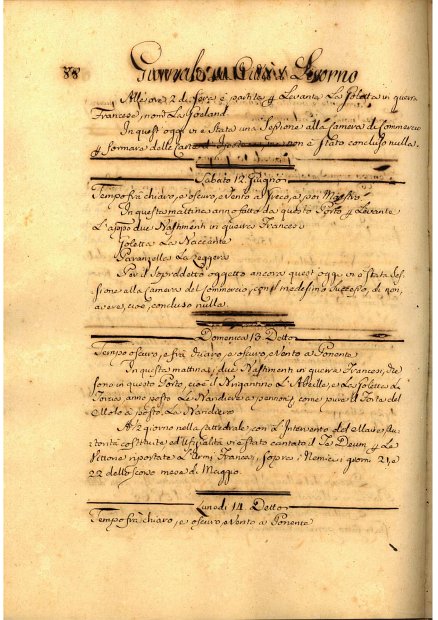 88 Giornale Livorno
Alle ore 2 di sera è partita p Levante La Goletta in guerra
Francese, nom.
In quest'oggi vi è stata una Sessione alla Camera di Commercio
p formare delle non è stato concluso nulla.
Sabato 12 Giugno
Tempo frà chiaro, e oscuro, e Vento a e poi Maestro
In questa mattina anno fatto da questo Porto p Levante
L'appo due Bastimenti in guerra Francesi
Goletta La
Paranzella La Leggera
Per il Sopraddetto oggetto ancora quest'oggi vi è stata Ses-
sione alla Camera del Commercio, con il medesimo Successo, di non
avere, cioè, concluso nulla.
Domenica 13 Detto
Tempo oscuro, e frà chiaro, e oscuro, e Vento a Ponente
In questa mattina, due Bastimenti in guerra Francesi, che
sono in questo Porto, cioè il Brigantino L'Abeille, e La Goletta La
anno posto Le Bandiere a come pure il Forte del
Molo a posto La Bandiera
A 1/2 giorno nella Cattedrale con L'Intervento del Maire,
costituite, ed Ufizialità vi è stato cantato il Te Deum p La
Vittoria riportata L'Armi Francesi, sopra i Nemici i giorni 21, e
22 dello scorso mese di Maggio.
Lunedì 14 Detto
Tempo frà chiaro, e oscuro, e Vento a Ponente